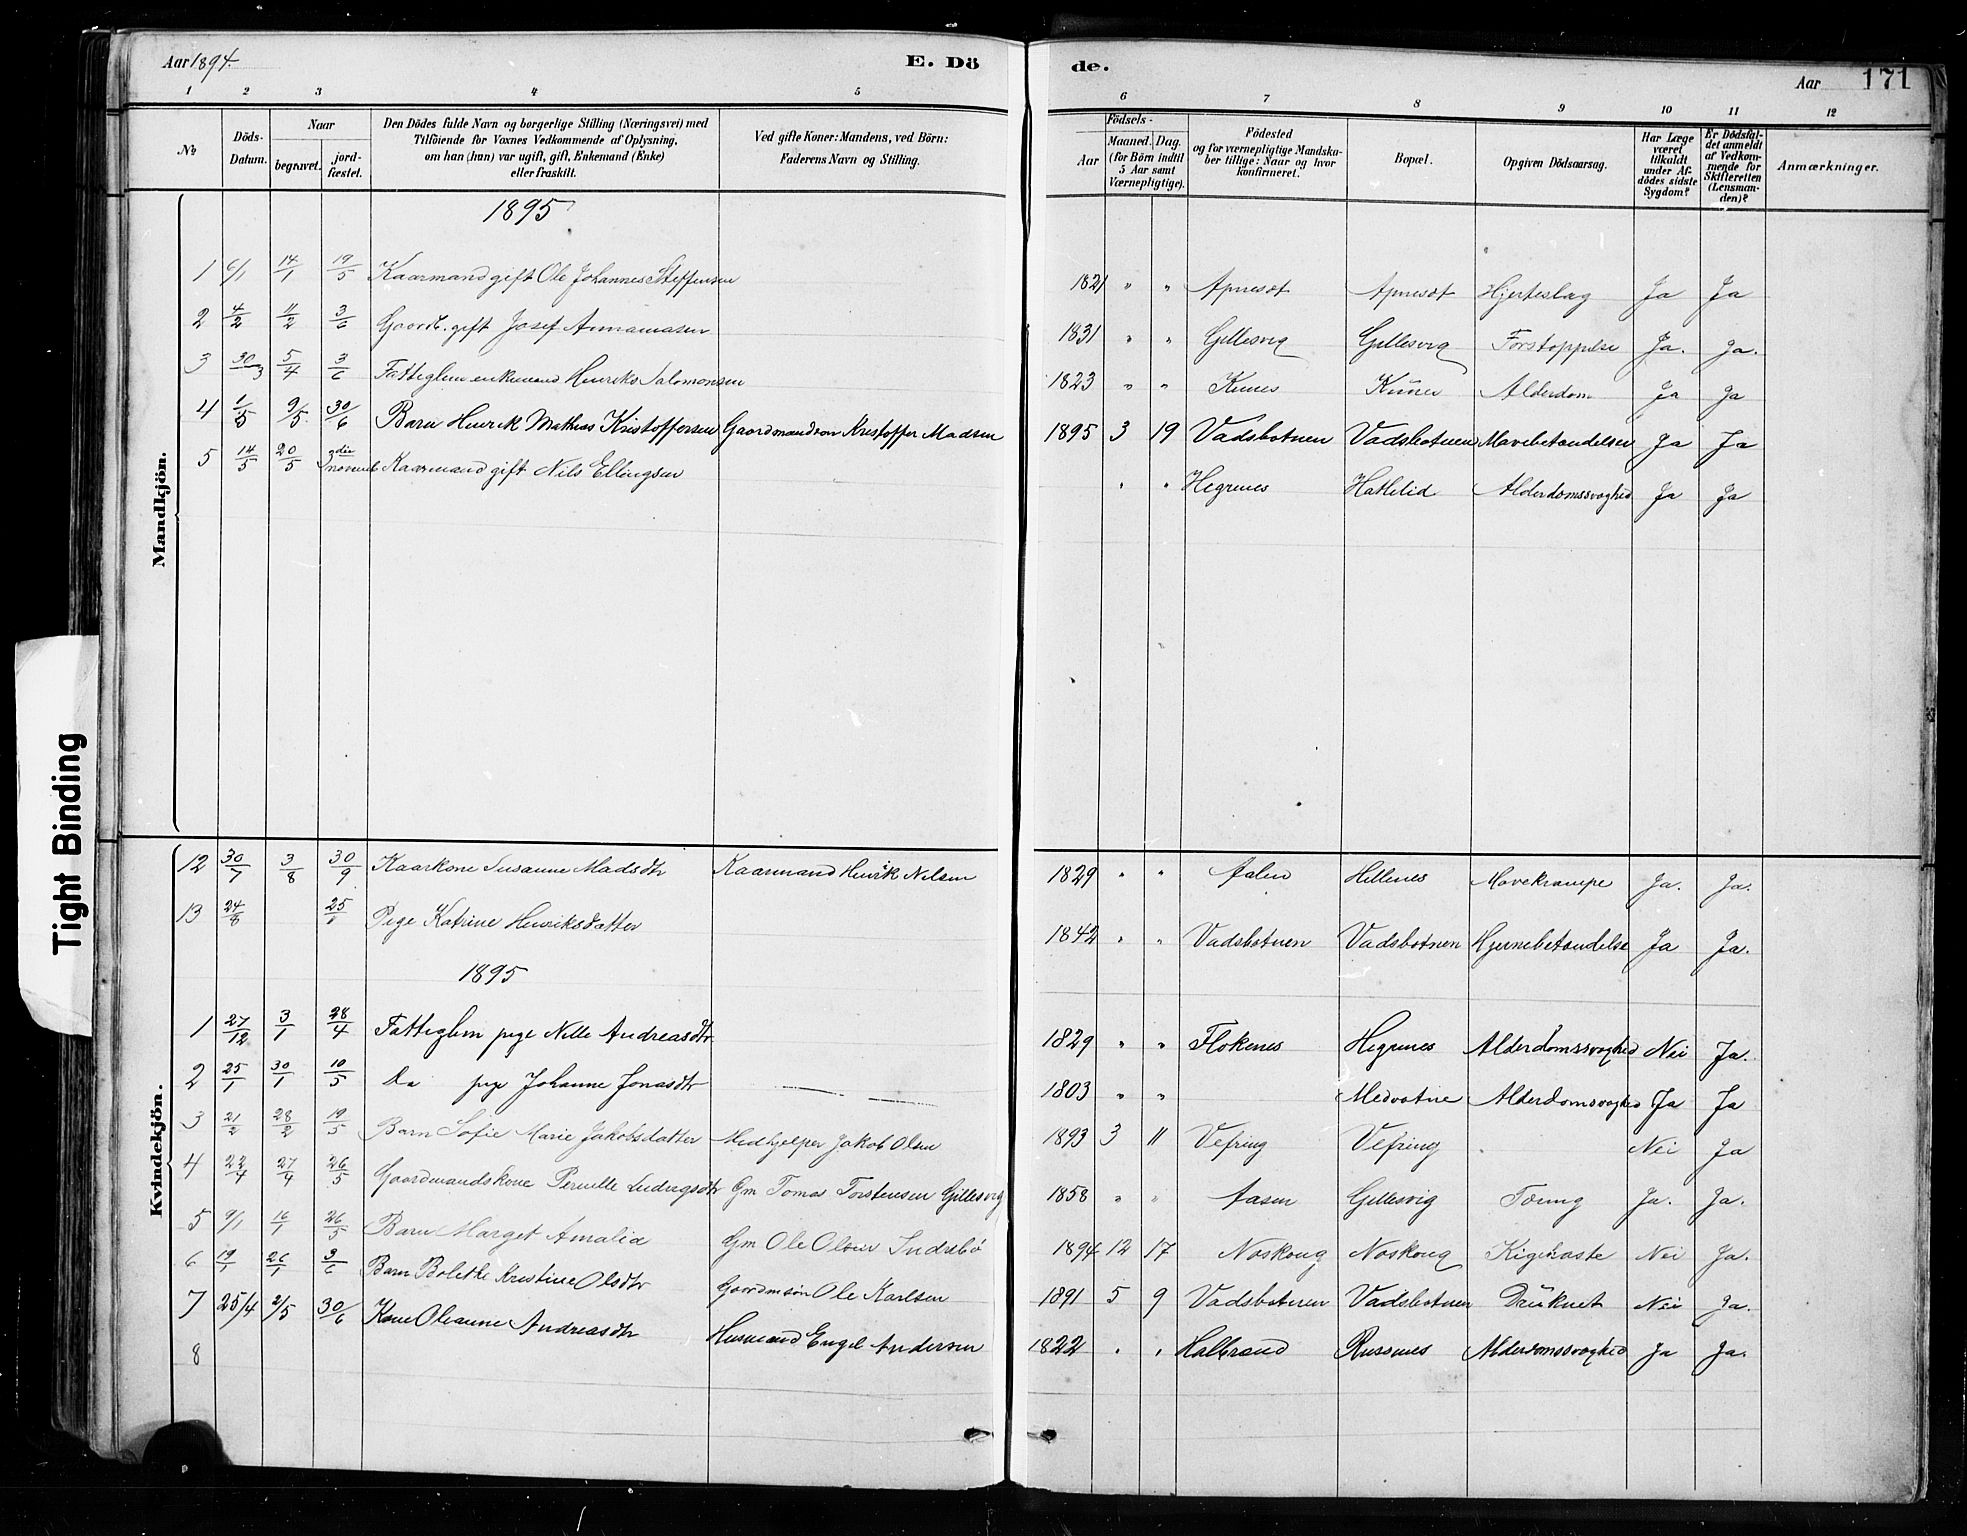 Aar 1894. E. Dö de. Aar 171
1 2 3 4 5 6 7 8 9 10 11 12
No Döds-Datum. Naar begravet. jord-fæstet. Den Dödes fulde Navn og borgerlige Stilling (Næringsvei) med Tilföiende for Voxnes Vedkommende af Oplysning, om han (hun) var ugift, gift, Enkemand (Enke) eller fraskilt. Ved gifte Koner: Mandens, ved Börn: Faderens Navn og Stilling. Födsels- Aar Maaned. Dag. (for Börn indtil 5 Aar samt Værnepligtige). Födested og for værnepligtige Mandska-ber tillige: Naar og hvor konfirmeret. Bopæl. Opgiven Dödsaarsag. Har Læge været tilkaldt under Af-dödes sidste Sygdom? Er Dödsfal-det anmeldt af Vedkom-mende for Skifteretten (Lensman-den)? Anmærkninger.
Mandkjön.
1895
1 6/1 14/1 19/5 Kaarmand gift Ole Johannes Steffensen 1821 " " Apnesæt Apnesæt Hjerteslag Ja Ja
2 4/2 11/2 3/6 Gaardb. gift Josef Annanıasen 1831 " " Gillesvig Gillesvig Forstoppelse Ja. Ja.
3 30/3 5/4 3/6 Fattiglem enkemand Henrik Salomonsen 1823 " " Kunes Alderdom Ja Ja
4 1/5 9/5 30/6 Barn Henrik Mathias Kristoffersen Gaardmandson Kristoffer Madsen 1895 3 19 Vadsbotnen Vadsbotnen Mavebetændelser Ja Ja
5 14/5 20/5 Kaarmand gift Nils Ellingsen " " Hegrenes Hatlelid Alderdomssvaghed Ja Ja
Kvindekjön.
12 30/7 3/8 30/9 Kaarkone Susanne Madsdtr Kaarmand Henrik Nilsen 1829 " " Aalen Hellenes Mavekrampe Ja. Ja.
13 24/8 25/1 Pige Katrine Henriksdatter 1842 " " Vadsbotnen Vadsbotnen Hjernebetændelse Ja Ja.
1895
1 27/12 3/1 28/4 Fattiglem pige Nille Andreasdtr 1829 " " Flokenes Hegrenes Alderdomssvaghed Nei Ja.
2 25/1 30/1 10/5 Do pige Johanne Jonasdtr 1803 " " Medvotne Alderdomsvaghed Ja Ja
3 21/2 28/2 19/5 Barn Sofie Marie Jakobsdatter Medhjelper Jakob Olsen 1893 3 11 Vefring Vefring Nei Ja
4 22/4 27/4 26/5 Gaardmandskone Pernille Ludvigsdtr Gm Tomas Torstensen Gillesvig 1858 " " Aasen Gillesvig Tæring Ja. Ja.
5 9/1 16/1 26/5 Barn Marget Amalia Gm Ole Olsen Indrebö 1894 12 17 Noskoug Noskoug Kighoste Nei Ja.
6 19/1 26/1 3/6 Barn Bolethe Kristine Olsdtr Gaardmsön Ole Karlsen 1891 5 9 Vadsbotnen Vadsbotnen Druknet Nei Ja.
7 25/4 2/5 30/6 Kone Oleanne Andreasdtr Husmand Engel Andersen 1822 " " Halbrand Russenes Alderdomssvaghed Ja Ja.
8
Tight Binding